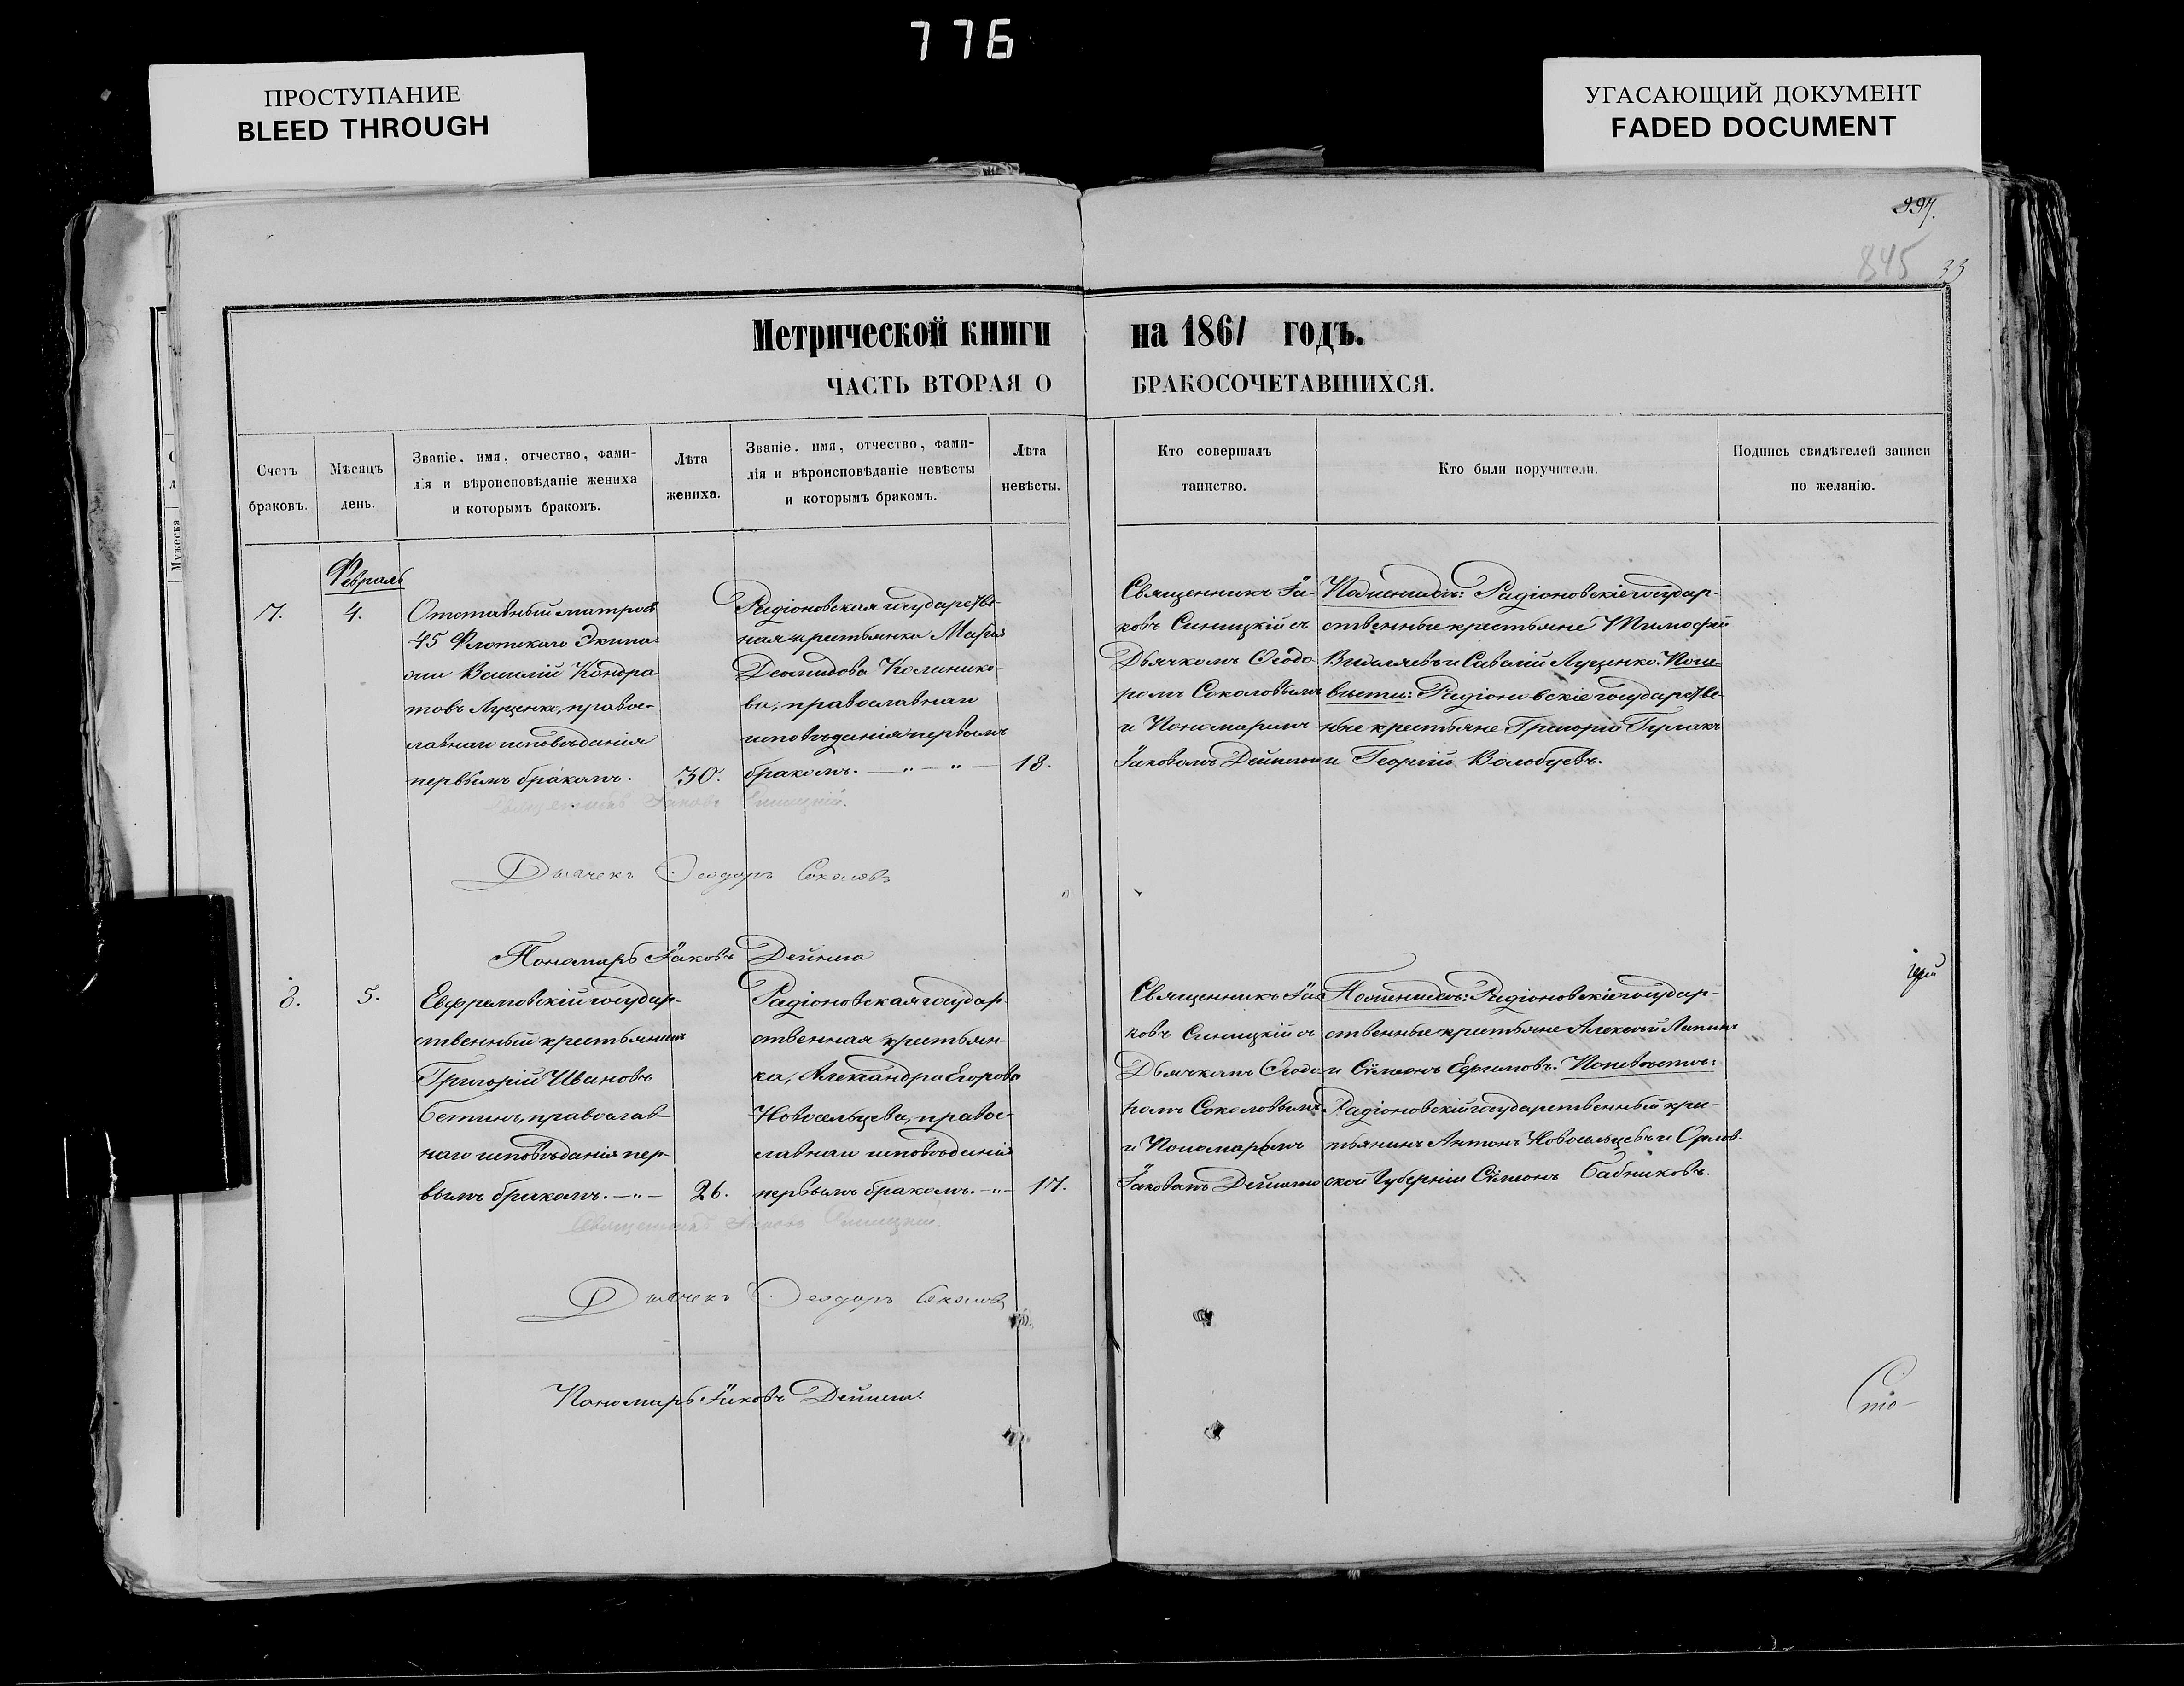 776
ПРОСТУПАНИЕ
BLEED THROUGH
УГАСАЮЩИЙ ДОКУМЕНТ
FADED DOCUMENT
997.
845
33
Метрической книги на 1861 годъ.
ЧАСТЬ ВТОРАЯ О БРАКОСОЧЕТАВШИХСЯ.
Счетъ
браковъ.
Мѣсяцъ
день.
Званіе, имя, отчество, фами-
лія и вѣроисповѣданіе жениха
и которымъ бракомъ.
Лѣта
жениха.
Званіе, имя, отчество, фами-
лія и вѣроисповѣданіе невѣсты
и которымъ бракомъ.
Лѣта
невѣсты.
Кто совершалъ
таинство.
Кто были поручители.
Подпись свидѣтелей записи
по желанію.
Мужеска
Февраль
7.
4.
Отставный матросъ
45 Флотскаго Экипа-
жа Василій Кондра
товъ Луценко, правос-
лавнаго исповѣданія
первымъ бракомъ.
30.
Радіоновская государстве-
ная крестьянка Марія
Деомидова Калинико-
ва, православнаго
исповѣданія первымъ
бракомъ. — „ — „ —
18.
Священникъ Іа-
ковъ Синицкій съ
Дьячкомъ Ѳеодо
ромъ Соколовымъ
и Пономаремъ
Іаковомъ Дейнекою
По женихѣ: Радіоновскіе государ-
ственные крестьяне Тимофей
и Савелій Луценко. По не-
вѣстѣ: Радіоновскіе государстве-
ные крестьяне Григорій Гулакъ
и Георгій Волобуевъ.
Священникъ Іаковъ Синицкій.
Дьячекъ Ѳеодоръ Соколовъ
Пономарь Іаковъ Дейнека
8.
5.
Евфремовскій государ-
ственный крестьянинъ
Григорій Ивановъ
Бетинъ, православ-
наго исповѣданія пер-
вымъ бракомъ. — „ —
26.
Радіоновская государ-
ственная крестьян-
ка, Александра Егорова
Новосельцева, правос-
лавнаго исповѣданія
первымъ бракомъ. — „ —
17.
Священникъ Іа
ковъ Синицкій съ
Дьячкомъ Ѳеодо
ромъ Соколовымъ
и Пономаремъ
Іаковомъ Дейнекою
По женихѣ: Радіоновскіе государ-
ственные крестьяне Алексѣй Лапинъ
и Сѵмеонъ Ефимовъ. По невѣстѣ:
Радіоновскій государственный кре-
тьянинъ Антонъ Новосельцевъ и Орлов-
ской Губерніи Сѵмеонъ Бабниковъ.
Священникъ Іаковъ Синицкій.
Дьячекъ Ѳеодоръ Соколовъ
Пономарь Іаковъ Дейнека.
іерей
Сто-